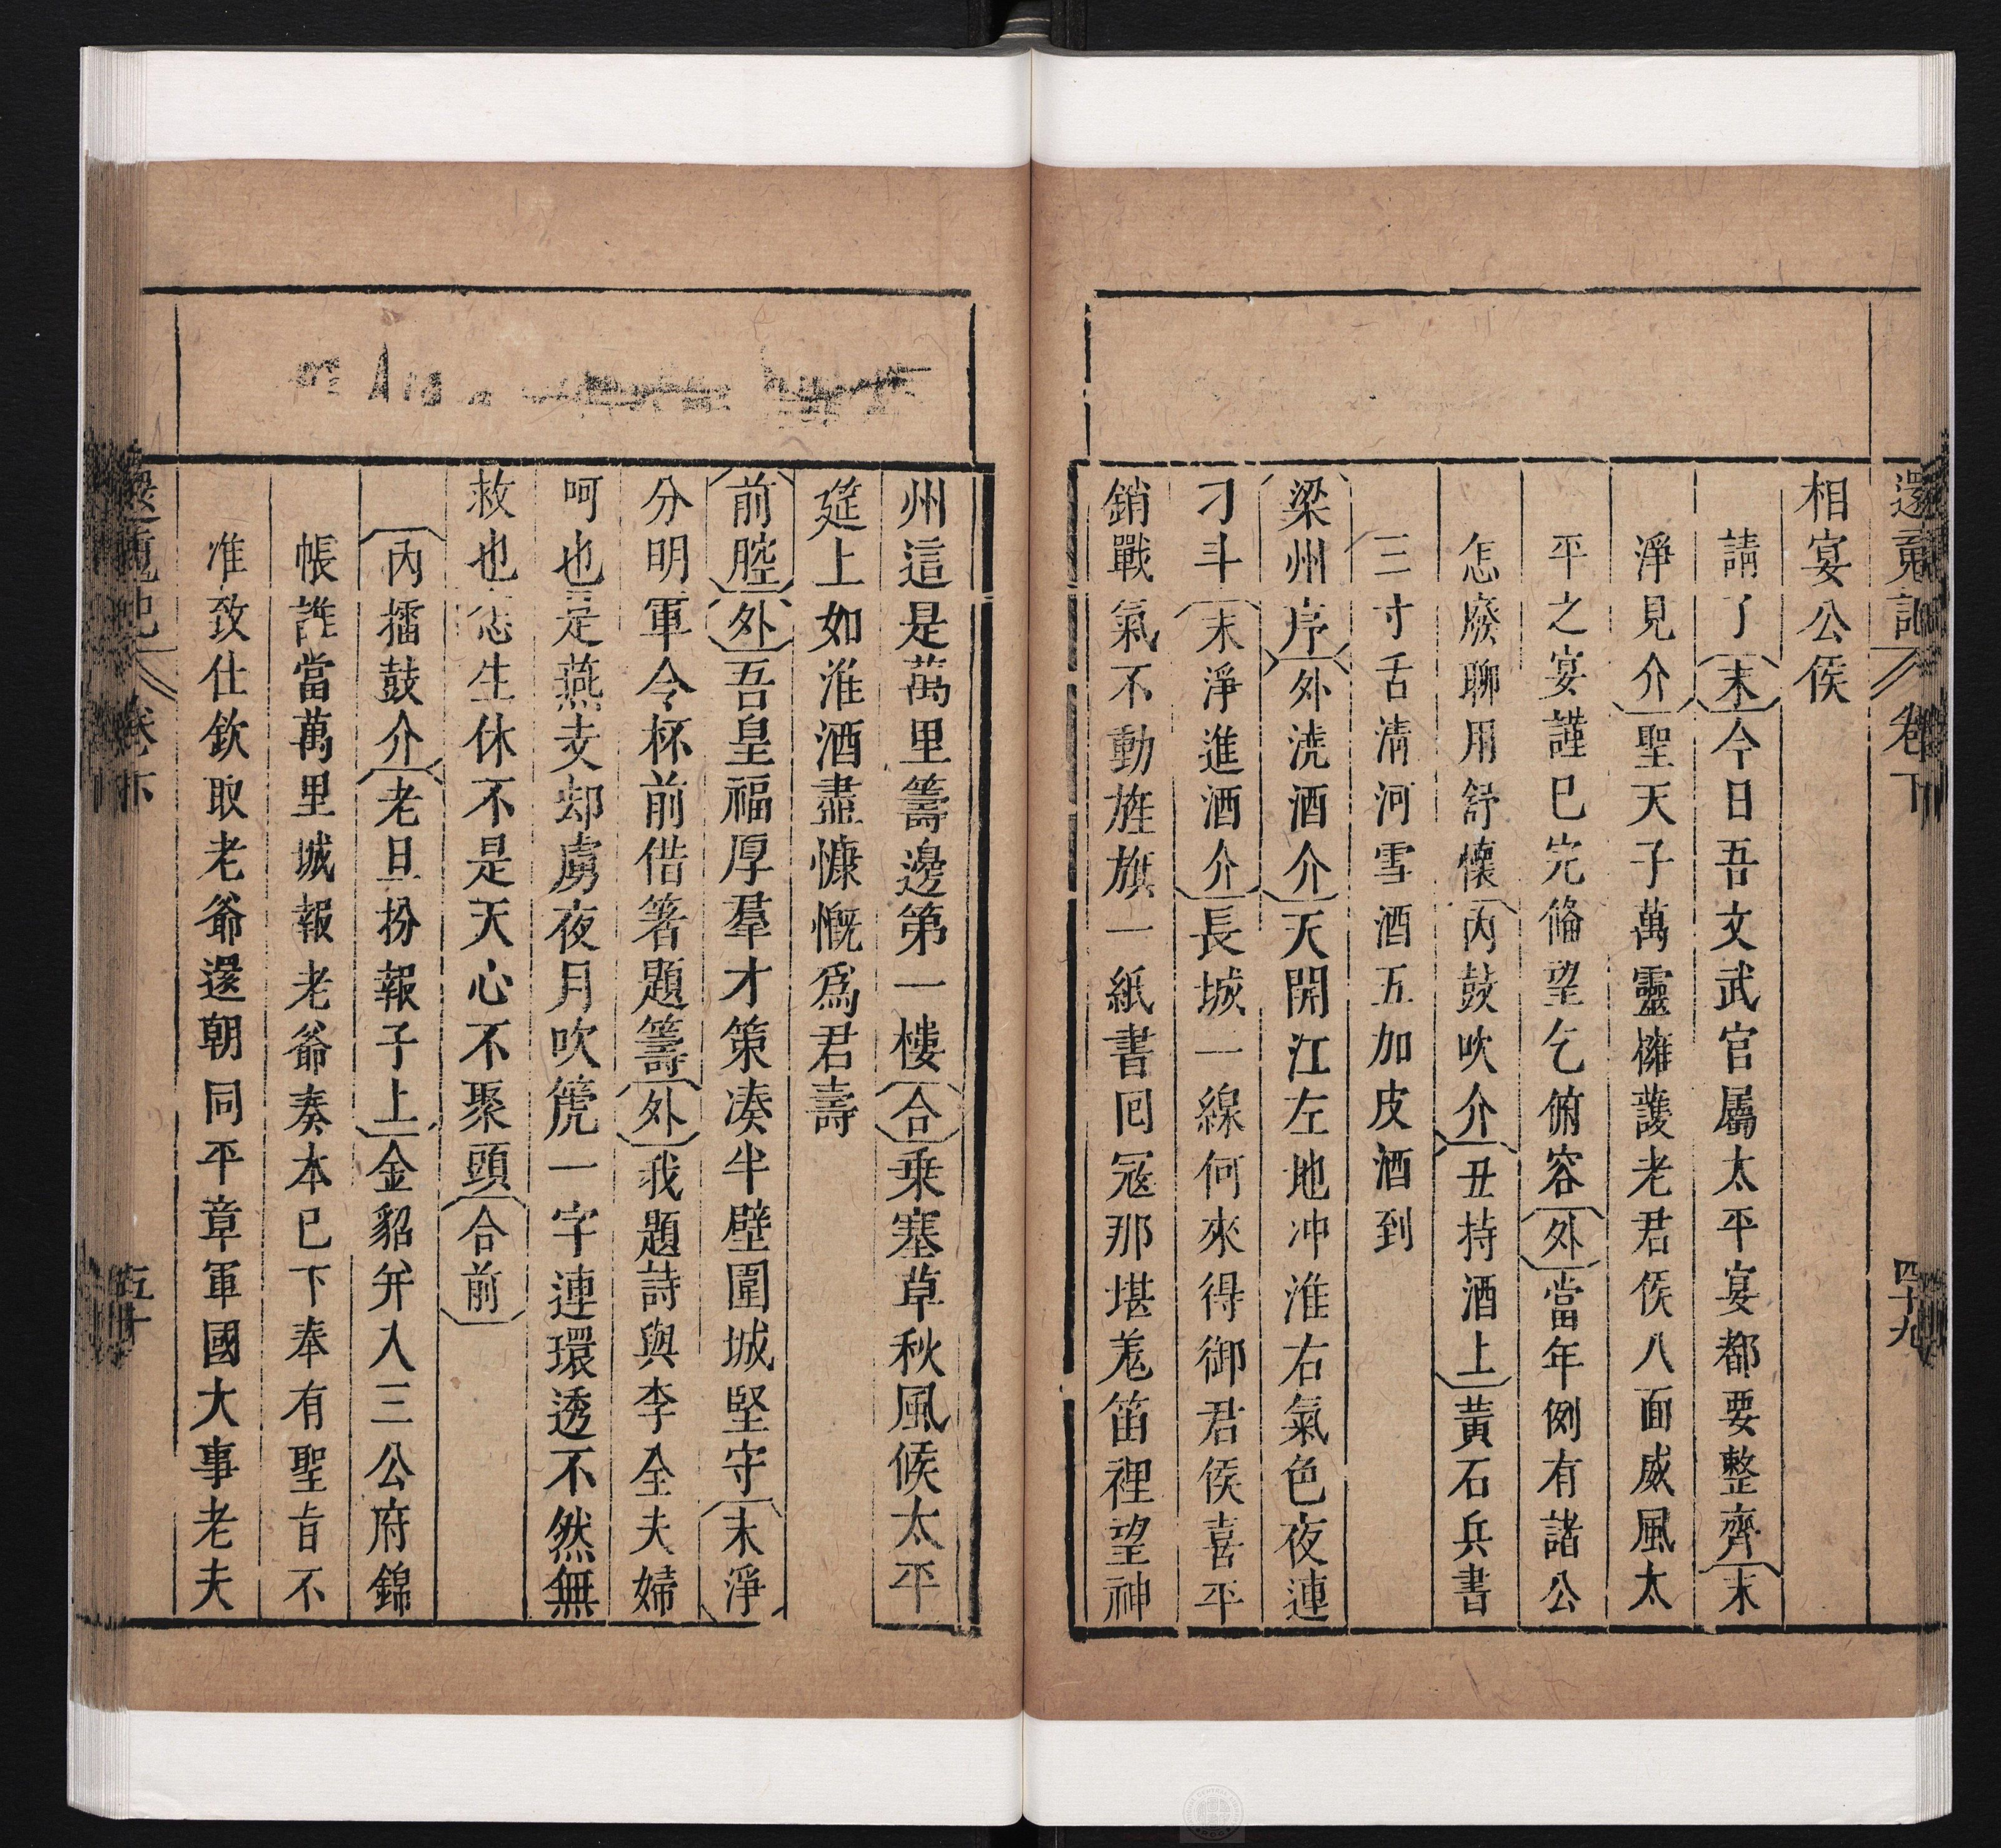 還魂記 卷下 四十九
相宴公侯
請了〔末〕今日吾文武官屬太平宴都要整齊〔末
淨見介〕聖天子萬靈擁護老君侯八面威風太
平之宴謹已完俻望乞俯容〔外〕當年例有諸公
怎廢聊用舒懷〔內鼓吹介〕〔丑持酒上〕黃石兵書
三寸舌清河雪酒五加皮酒到
〔梁州序〕〔外澆酒介〕天開江左地冲淮右氣色夜連
刁斗〔末淨進酒介〕長城一線何來得御君侯喜平
銷戰氣不動旌旗一紙書囘冦那堪羗笛裡望神
州這是萬里籌邊第一樓〔合〕乗塞草秋風候太平
筵上如淮酒盡慷慨爲君壽
〔前腔〕〔外〕吾皇福厚羣才策凑半壁圍城堅守〔末淨〕
分明軍令杯前借箸題籌〔外〕我題詩與李全夫婦
呵也是燕支却虜夜月吹篪一字連環透不然無
救也怎生休不是天心不聚頭〔合前〕
〔內擂鼓介〕〔老旦扮報子上〕金貂并入三公府錦
帳誰當萬里城報老爺奏本已下奉有聖旨不
准致仕欽取老爺還朝同平章軍國大事老夫
還魂記 卷下 五十